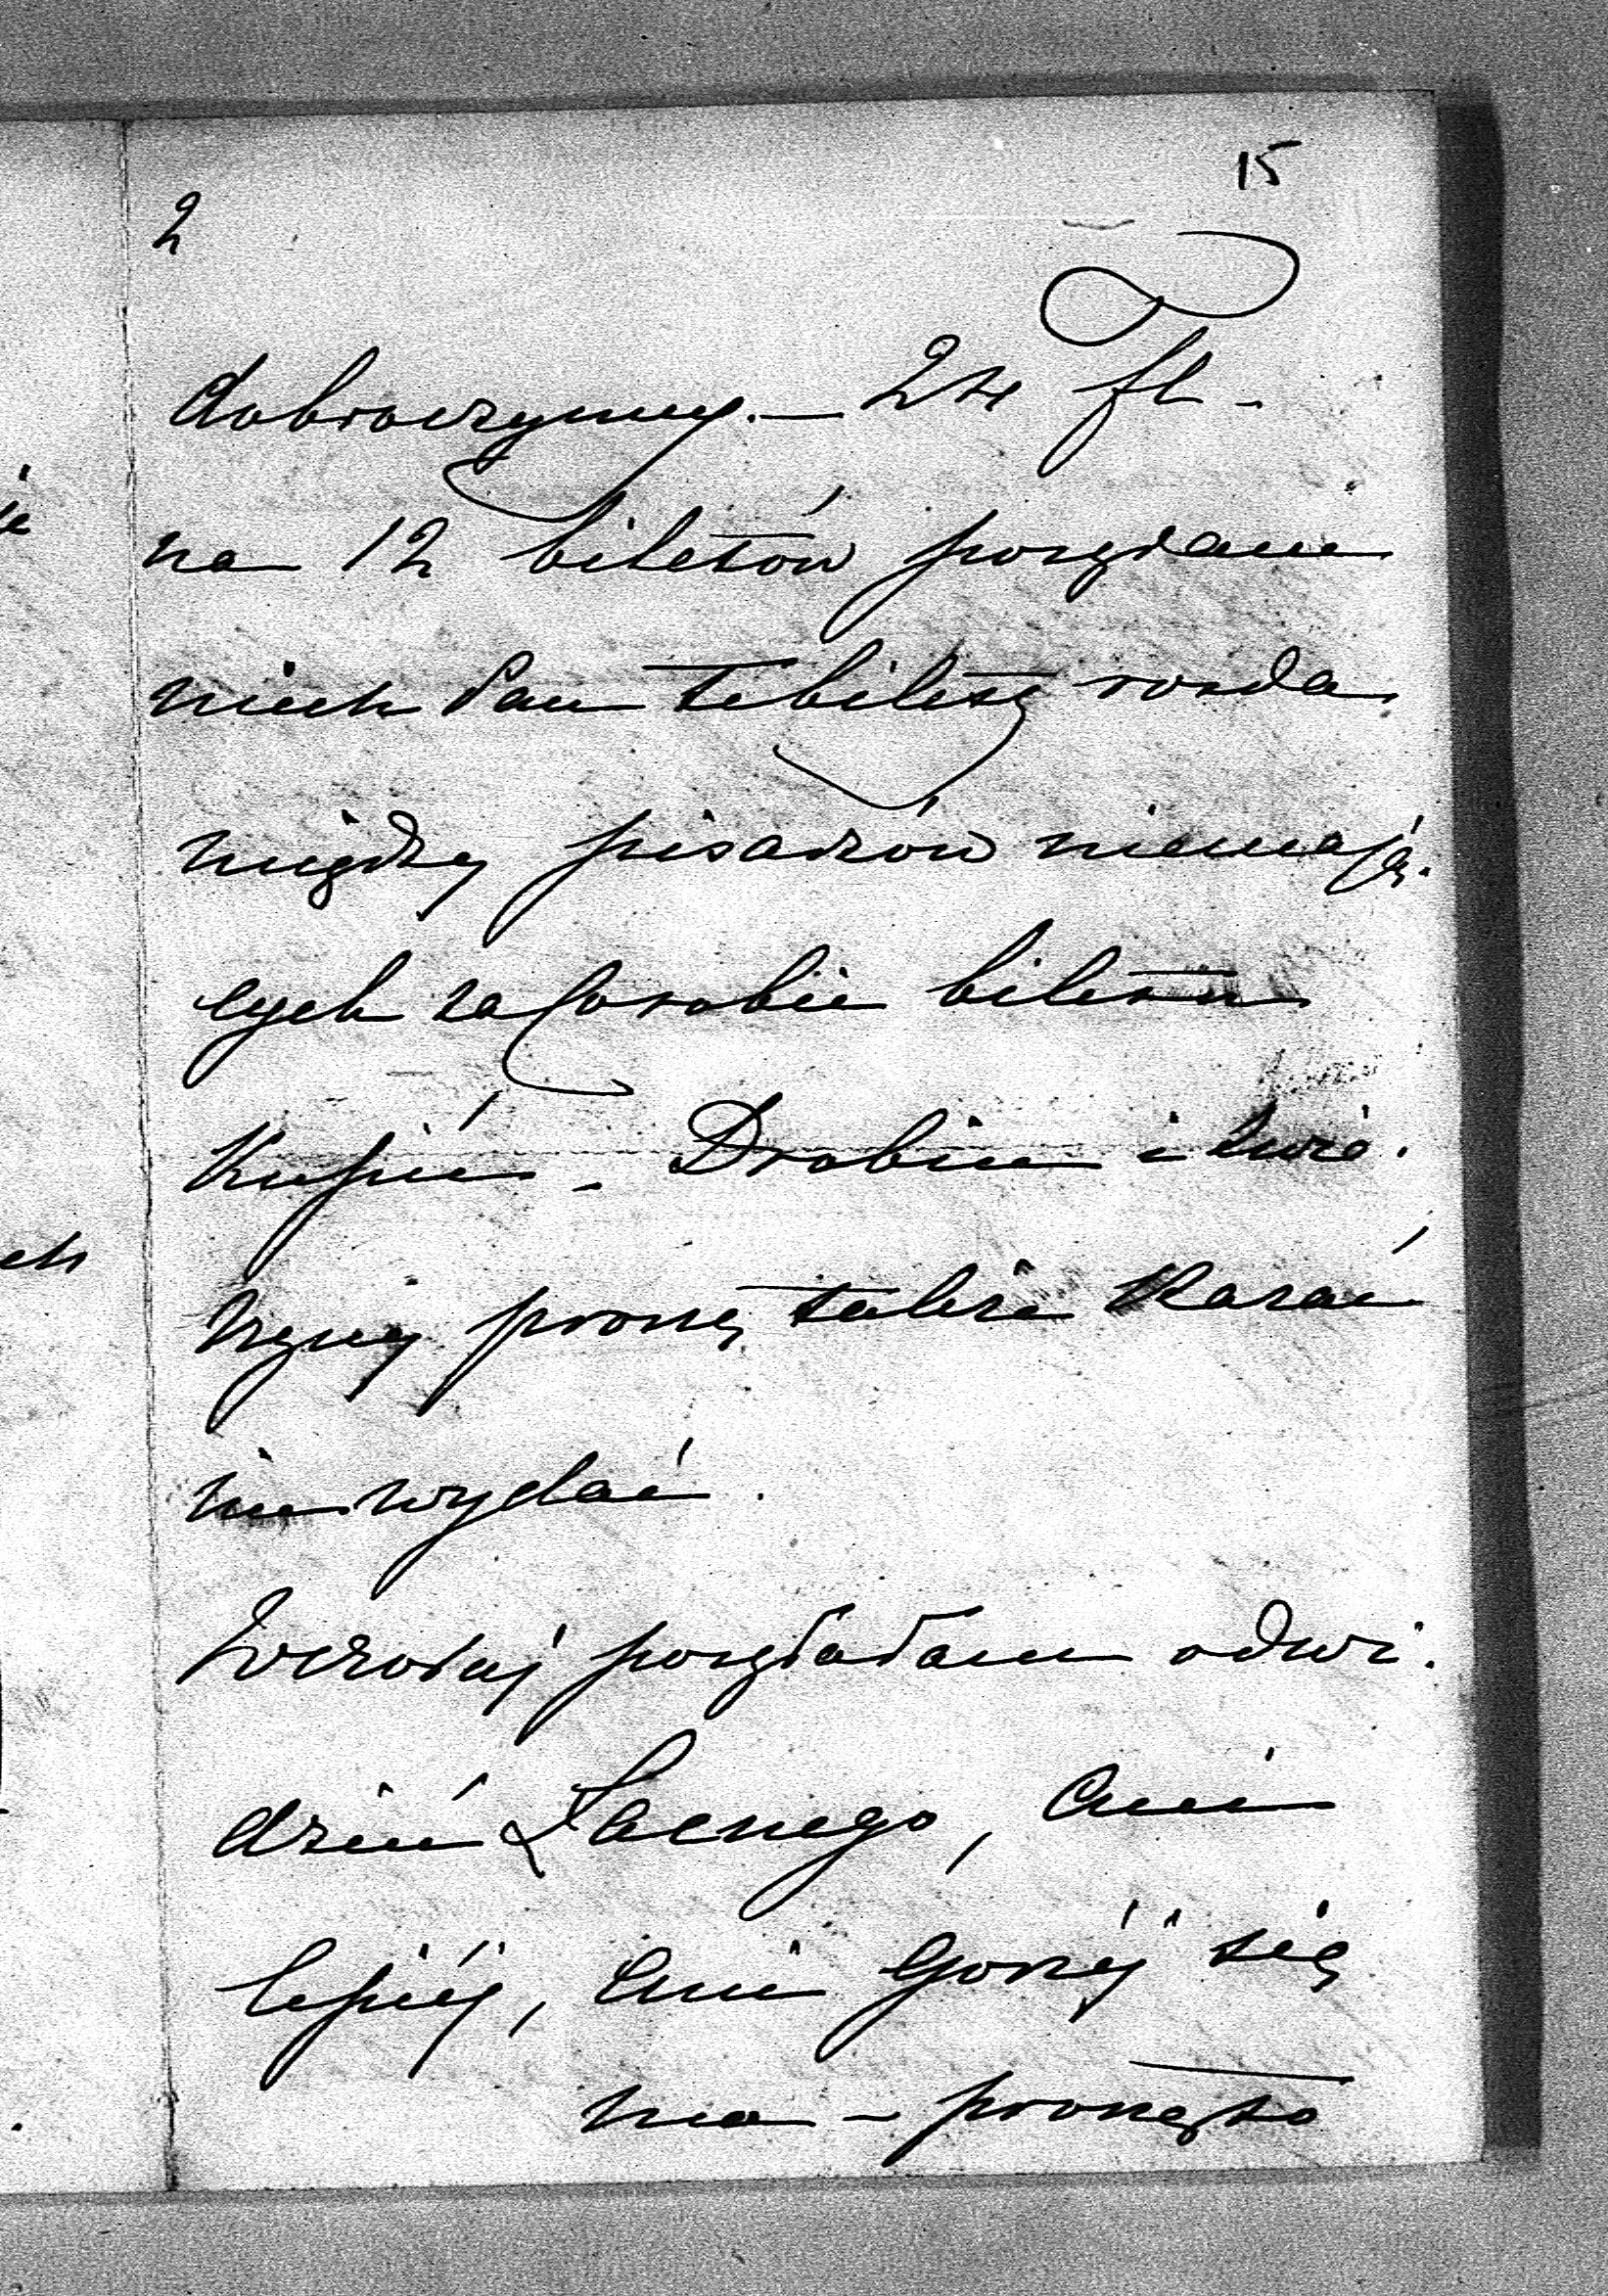 15
2
dobroczynny. — 24 fl -
na 12 biletów posyłam
niech Pan te bilety rozda
między pisarzów niemają-
cych za co sobie biletu
kupić. Drobin i
proszę także kazać
im wydać.
Wczoraj posyłałam odwi-
dzić Łacnego, ani
lepiéj, ani gorzéj się
ma – proszę to